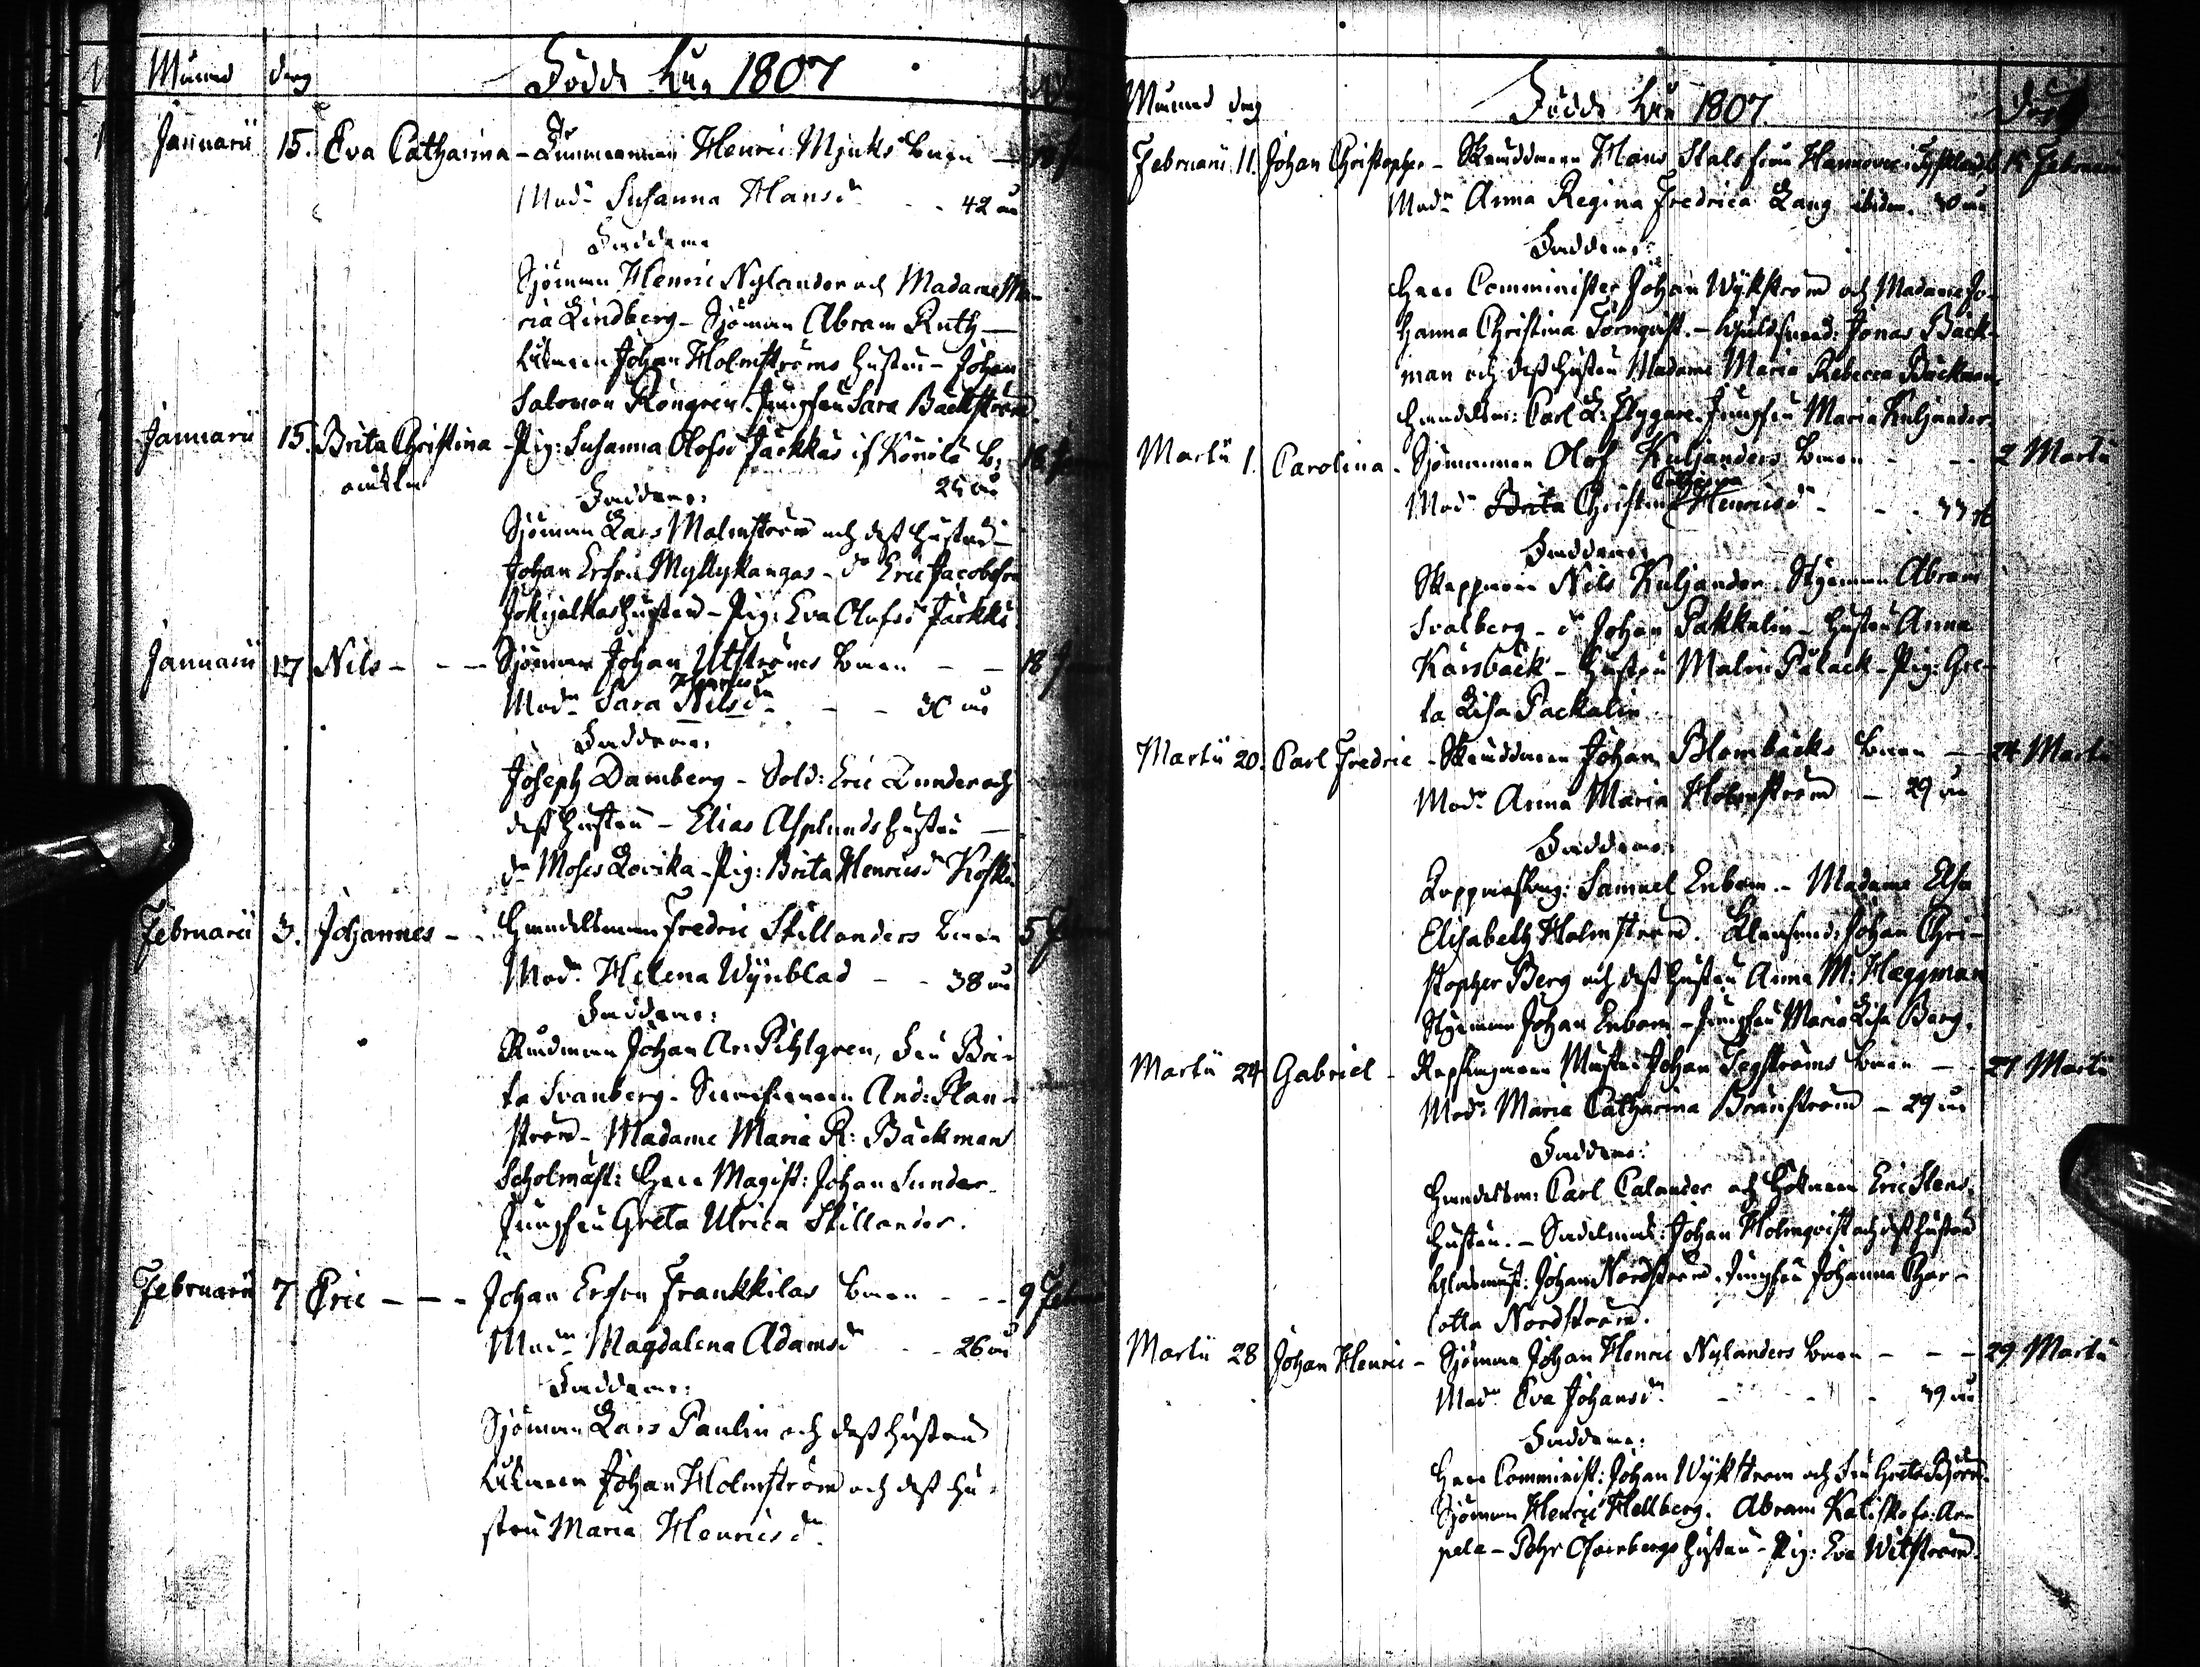 Månad dag Födde åhr 1807
Januarii 15. Eva Catharina - Timmerman Henric Mjuks barn
Mod:n Susanna Hansd:r 42 åhr
Faddrar
Sjöman Henric Nylander och Madame Ma-
ria Lindberg - Sjöman Abram Ruth -
Johan Holmströms hustru - Johan
Salomon Röngren. Jungfru Sara Bäckström
Januarii 15. Brita Christina - Pig: Susanna Olofsd:r Jackkas if Könilä b:
oäckta 25 åhr
Faddrar:
Sjöman Lars Malmström och dess hustru -
Johan Ersson Myllykangas - d:o Eric Jacobsson
Jokijalkas hustru - Pig: Eva Olofsd:r Jackku
Januarii 17 Nils - - - Sjöman Johan Utströms barn - - 18
Henricsd:r
Mod:n Sara Nilsd:r - - 30 åhr
Faddrar:
Joseph Damberg - Sold: Eric Lunder och
dess hustru - Elias Asplunds hustru -
d:o Moses Lovika - Pig: Brita Henricsd:r Koski
Februarii 3. Johannes - - Handelsman Fredric Skillanders barn 5
Mod:n Helena Wynblad - - 38 åhr
Faddrar:
Rådman Johan Ar: Pihlgren, Fru Bri-
ta Svanberg. And: Plan-
ström - Madame Maria R: Bäckman
Scholmäst: Herr Magist: Johan Sunder.
Jungfru Greta Ulrica Skillander.
Februarii 7 Eric - - - Johan Ersson Frankkilas barn - - 9 Febru
Mod:n Magdalena Adamsd:r - 26 åhr
Faddrar:
Sjöman Lars Paulin och dess hustru
Johan Holmström och dess hu-
stru Maria Henricsd:r
Månad dag Födde åhr 1807. Döpt
Februarii 11. Johan Christopher - Skräddaren Hans Stals från Hannover i Tyskland b 15 Februarii
Mod:n Anna Regina Fredrica Lang ibidem. 30 åhr
Faddrar:
Herr Comminister Johan Wykström och Madame Jo-
hanna Christina Törnqvist. - Guldsmed: Jonas Back-
man och dess hustru Madame Maria Rebecca Bäckman
Handelsm: Carl L: Flygare. Jungfru Maria Kuljander.
Martii 1. Carolina - Sjömannen Olof Kuljanders barn - - 2 Martii
Catharina
Mod:n Brita Christina Henricsd:r - - 33 åhr
Faddrar:
Skepparen Nils Kuljander. Styrman Abram
Svalberg - d:o Johan Pakkalin - hustru Anna
Kårsbäck - hustru Malin Palack - Pig: Gre-
ta Lisa Packalin
Martii 20. Carl Fredric - Skräddaren Johan Blombäcks barn - 24 Martii
Mod:n Anna Maria Holmström - 29 åhr
Faddrar:
Samuel Enbom. - Madame Elsa
Elisabeth Holmström. Johan Chri-
stopher Berg och dess hustru Anna M: Häggman
Styrman Johan Enbom - Jungfru Maria Lisa Berg.
Martii 24 Gabriel - Johan Segströms barn - 27 Martii
Mod:n Maria Catharina Brånström - 29 åhr
Faddrar:
Handelsm: Carl Calander och Eric Stens
hustru. - Sadelmak: Johan Holmqvist och dess hustru
Glasmäst: Johan Nordström. Jungfru Johanna Char-
lotta Nordström.
Martii 28 Johan Henric - Sjöman Johan Henric Nylanders barn - - 29 Martii
Mod:n Eva Johansd:r - - 39 åhr
Faddrar:
Herr Comminist: Johan Wykström och Fru Greta Björn
Sjöman Henric Hellberg. Abram
pela - Pehr hustru - Pig: Eva Witström.